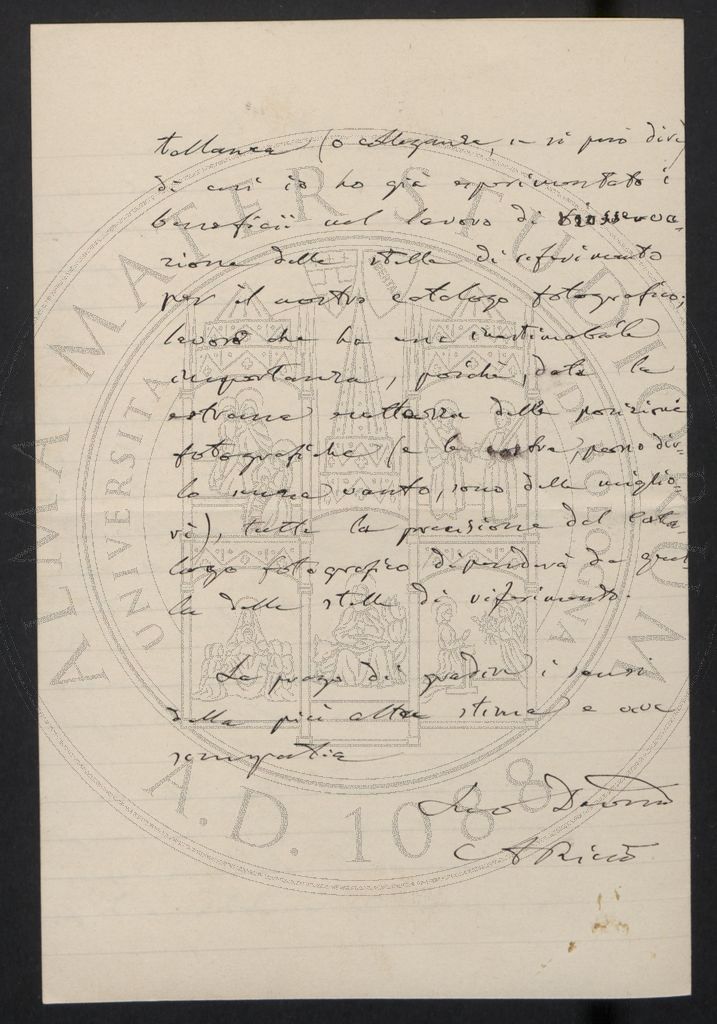 tellanza (o alleganza, se si può dire)
di cui io ho già esperimentato i
beneficii nel lavoro di riosserva-
zione delle stelle di riferimento
per il nostro catalogo fotografico;
lavoro che ha una inestimabile
importanza, poichè, data la
estrema esattezza delle posizioni
fotografiche (e le nostre, posso dir-
lo senza vanto, sono delle miglio-
ri), tutta la precisione del cata
logo fotografico dipenderà da quel
la delle stelle di riferimento.
La prego di gradire i sensi
della più alta stima e viva
simpatia
Suo Devmo
A Riccò
ALMA MATER STUDIORUM
UNIVERSITA
BOLOGNA
LIBERTAS
A.D. 1088